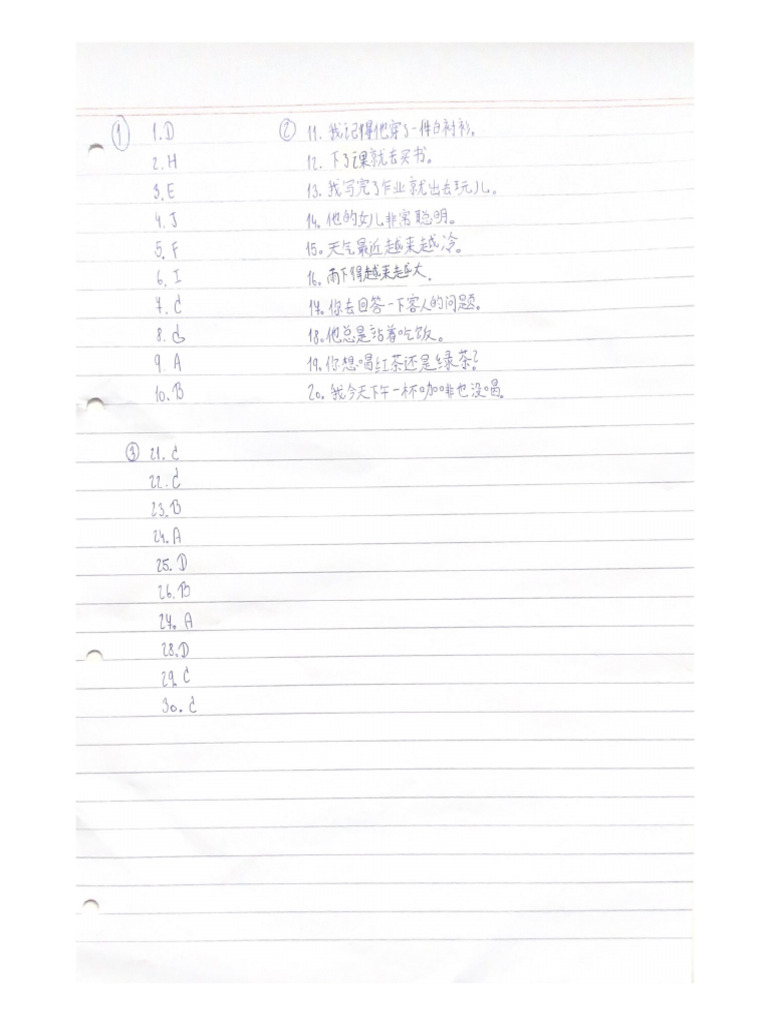 ① 1. D
2. H
3. E
4. J
5. F
6. I
7. C
8. G
9. A
10. B
② 11. 我记得他穿了一件白衬衫。
12. 下了课就去买书。
13. 我写完了作业就出去玩儿。
14. 他的女儿非常聪明。
15. 天气最近越来越冷。
16. 雨下得越来越大.
17. 你去回答一下客人的问题。
18. 他总是站着吃饭。
19. 你想喝红茶还是绿茶?
20. 我今天下午一杯咖啡也没喝。
③ 21. C
22. C
23. B
24. A
25. D
26. B
27. A
28. D
29. C
30. C